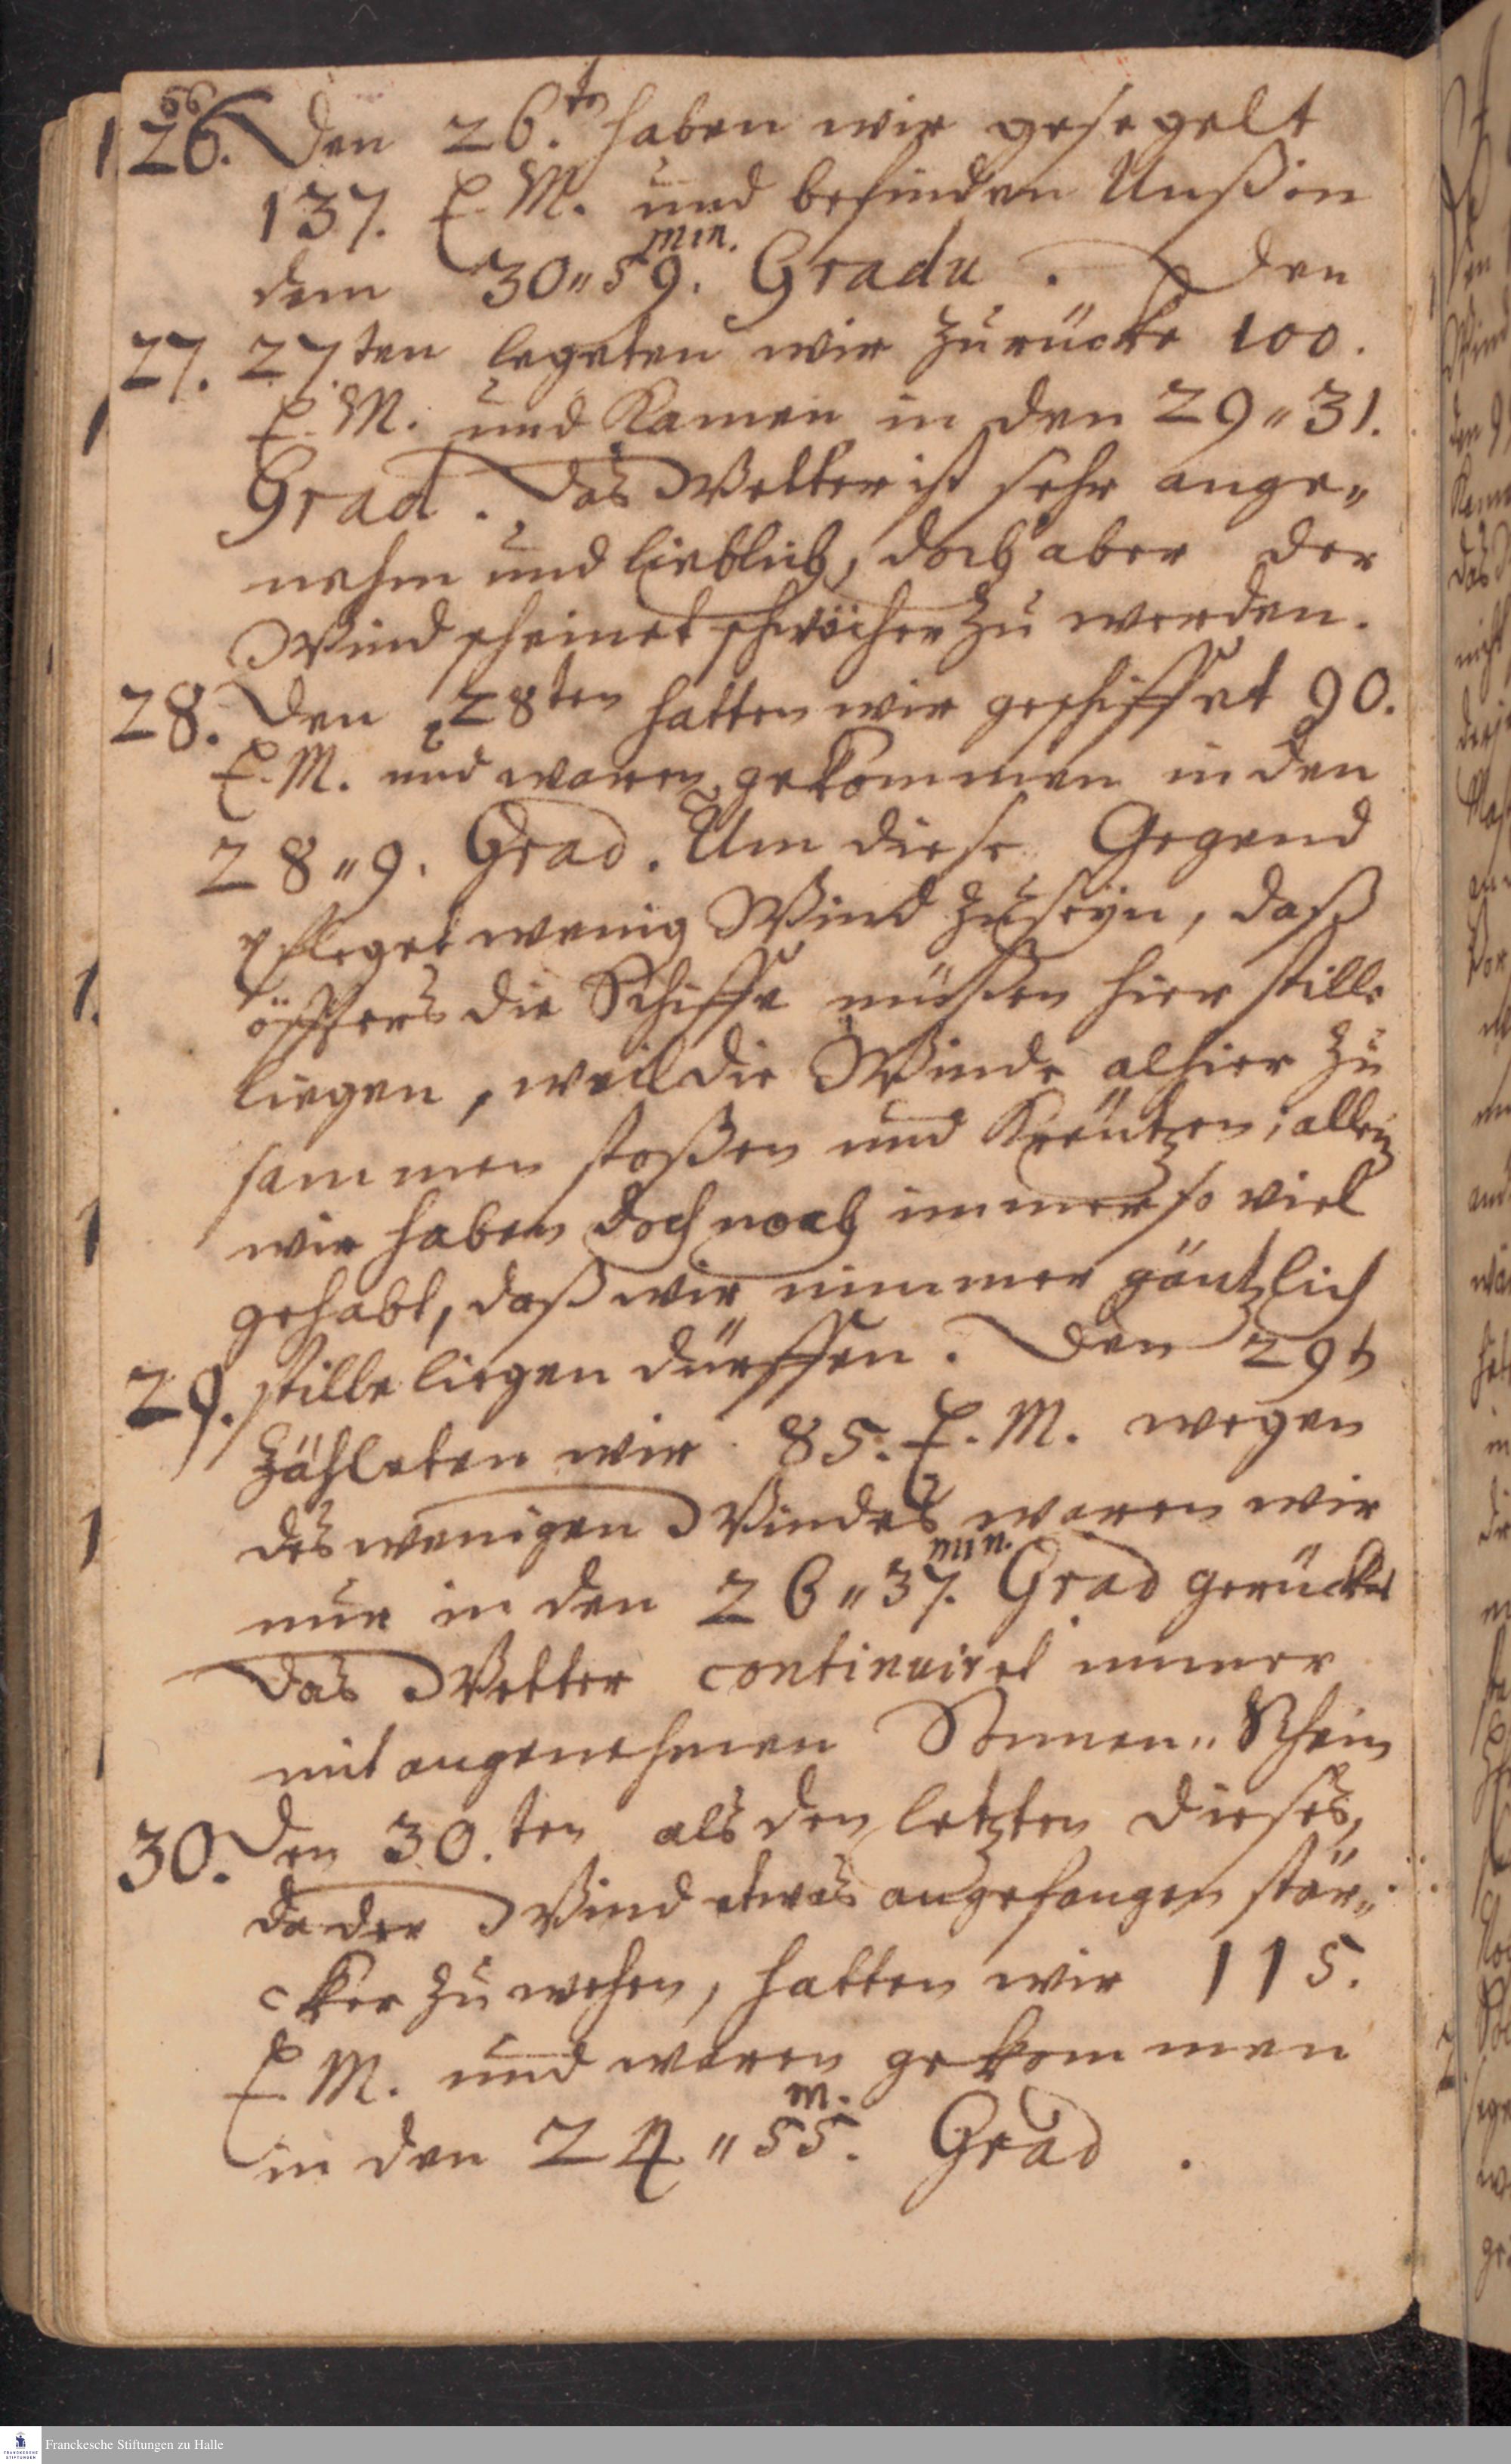 66
26. Den 26.t haben wir gesegelt
137. E. M. und befinden Unß in
dem 30„59. min. Gradu. Den
27. 27ten legeten wir zurücke 100.
E. M. und kamen in den 29„31.
Grad. Das Wetter ist sehr ange„
nehm und lieblich, doch aber der
Wind scheinet schwächer zu werden.
28. Den 28ten hatten wir geschiffet 90.
E. M. und waren gekommen in den
28„9. Grad. Um diese Gegend
pfleget wenig Wind zu seyn, daß
öffters die Schiffe müßen hier stille
liegen, weil die Winde alhier zu
sammen stoßen und Kreutzen; allein
wir haben doch noch immer so viel
gehabt, daß wir nimmer gäntzlich
29. stille liegen dürffen. Den 29t
zähleten wir 85. E. M. wegen
des wenigen Windes waren wir
nur in den 26„37. min. Grad gerücket
Das Wetter continuiret immer
mit angenehmen Sonnen„Schein
30. Den 30.ten als den letzten dieses,
da der Wind etwas angefangen stär„
cker zu wehen, hatten wir 115.
E. M. und waren gekommen
in den 24„55. m. Grad.
Franckesche Stiftungen zu Halle